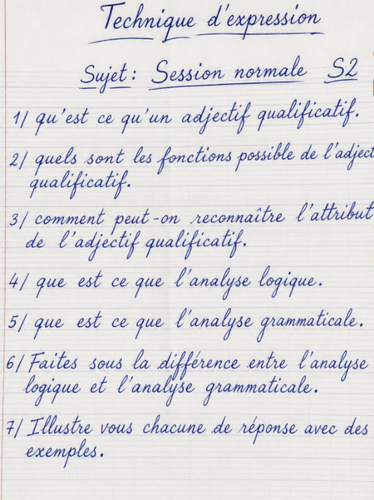 Technique d'expression
Sujet : Session normale S2
1/ qu'est ce qu'un adjectif qualificatif.
2/ quels sont les fonctions possible de l'adject
qualificatif.
3/ comment peut-on reconnaître l'attribut
de l'adjectif qualificatif.
4/ que est ce que l'analyse logique.
5/ que est ce que l'analyse grammaticale.
6/ Faites sous la différence entre l'analyse
logique et l'analyse grammaticale.
7/ Illustre vous chacune de réponse avec des
exemples.